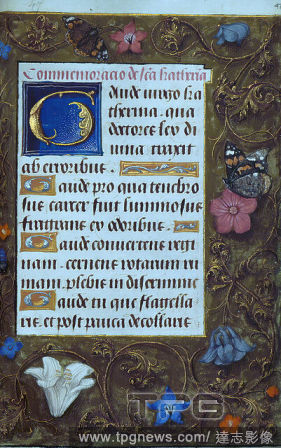 Commemoracio de sca katheria
Gaude uirgo ka
therina . qua
doctore ley di
uina traxit
ab erroribus .
Gaude pro qua tenebro
sus carcer fuit luminosus
odoribus .
Gaude convertens regi
nam . cernens rotarum ru
inam . plebis in discrimine
Gaude tu que flagella
ris . et post pauca decollaris
TPG
www.tpgnews.com/達志影像